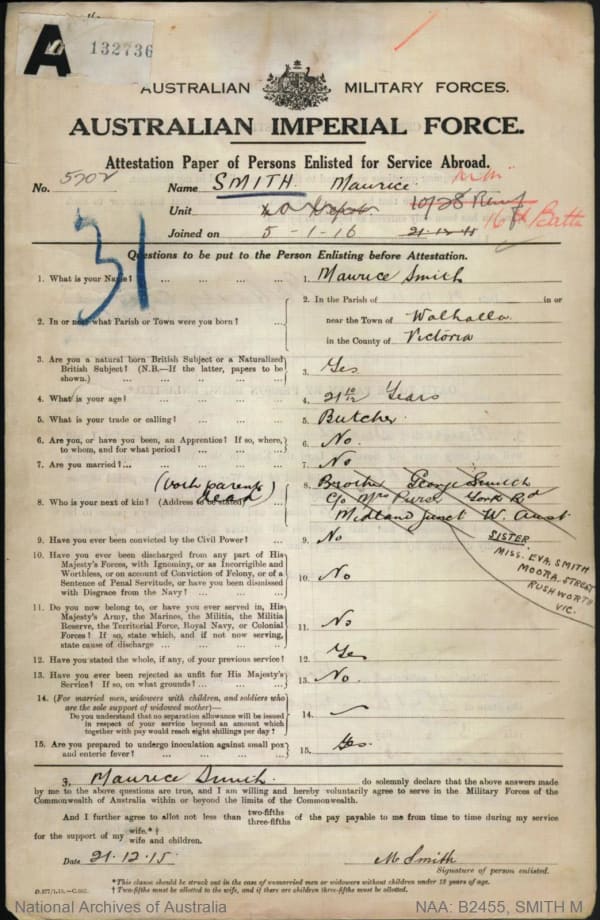 A
132736
AUSTRALIAN MILITARY FORCES.
AUSTRALIAN IMPERIAL FORCE.
Attestation Paper of Persons Enlisted for Service Abroad.
No. 5202 Name SMITH Maurice M.M.
Unit Depot 10/28 Reinf 16th Battn
Joined on 5-1-16 21-12-15
31
Questions to be put to the Person Enlisting before Attestation.
1. What is your Name? ... ... ... ... 1. Maurice Smith
2. In or near what Parish or Town were you born? ... 2. In the Parish of in or
near the Town of Walhalla
in the County of Victoria
3. Are you a natural born British Subject or a Naturalized
British Subject? (N.B.—If the latter, papers to be
shown.) ... ... ... ... ... 3. Yes
4. What is your age? ... ... ... ... 4. 21 10/12 Years
5. What is your trade or calling? ... ... ... 5. Butcher
6. Are you, or have you been, an Apprentice? If so, where,
to whom, and for what period? ... ... ... 6. No.
7. Are you married?... ... ... ... ... 7. No
(both parents dead)
8. Who is your next of kin? (Address to be stated) 8. Brother George Smith
C/o Mrs Purser York Rd
Midland Junct W. Aust
SISTER.
MISS. EVA. SMITH
MOORA. STREET
RUSHWORTH
VIC.
9. Have you ever been convicted by the Civil Power? ... 9. No
10. Have you ever been discharged from any part of His
Majesty's Forces, with Ignominy, or as Incorrigible and
Worthless, or on account of Conviction of Felony, or of a
Sentence of Penal Servitude, or have you been dismissed
with Disgrace from the Navy? ... ... ... 10. No
11. Do you now belong to, or have you ever served in, His
Majesty's Army, the Marines, the Militia, the Militia
Reserve, the Territorial Force, Royal Navy, or Colonial
Forces? If so, state which, and if not now serving,
state cause of discharge ... ... ... ... 11. No
12. Have you stated the whole, if any, of your previous service? 12. Yes
13. Have you ever been rejected as unfit for His Majesty's
Service? If so, on what grounds? ... ... ... 13. No.
14. (For married men, widowers with children, and soldiers who
are the sole support of widowed mother)—
Do you understand that no separation allowance will be issued
in respect of your service beyond an amount which
together with pay would reach eight shillings per day? 14.
15. Are you prepared to undergo inoculation against small pox
and enteric fever? ... ... ... ... 15. Yes.
I, Maurice Smith do solemnly declare that the above answers made
by me to the above questions are true, and I am willing and hereby voluntarily agree to serve in the Military Forces of the
Commonwealth of Australia within or beyond the limits of the Commonwealth.
And I further agree to allot not less than two-fifths three-fifths of the pay payable to me from time to time during my service
for the support of my wife.* † wife and children.
Date 21.12.15 M Smith
Signature of person enlisted.
*This clause should be struck out in the case of unmarried men or widowers without children under 18 years of age.
† Two-fifths must be allotted to the wife, and if there are children three-fifths must be allotted.
National Archives of Australia NAA: B2455, SMITH M